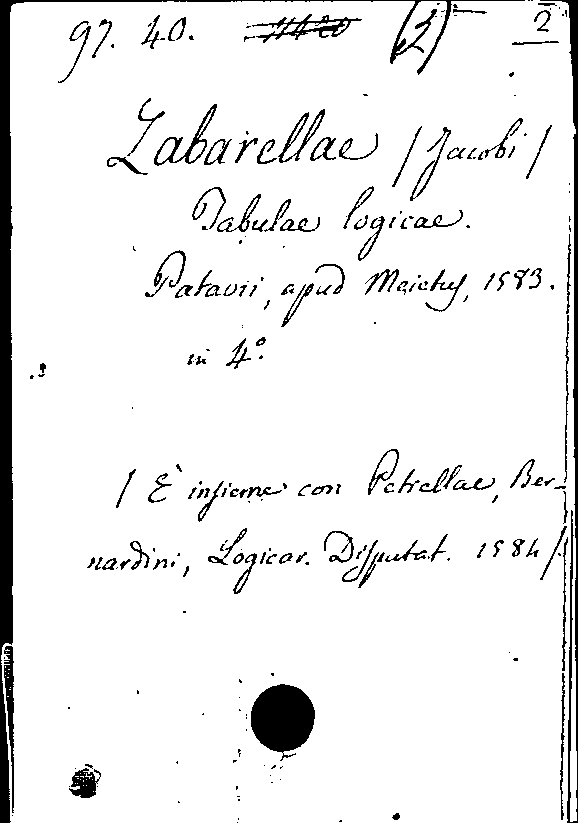 97. 40. 11420 (2) 2
Zabarellae / Jacobi /
Tabulae logicae.
Patavii, apud Meietus, 1583.
in 4°.
/ È insieme con Petrellae, Ber-
nardini, Logicar. Disputat. 1584 /